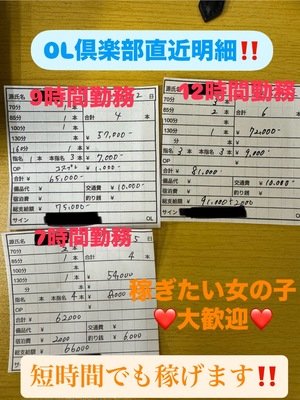 OL倶楽部直近明細‼️
9時間勤務
源氏名 2日
70分 本
85分 1本 合計 4本
100分 本
130分 1本 ¥57,000-
160分 1本
指名 1本 本指名 3本 ¥7,000-
OP コスプレ ¥1,000-
合計¥ 65,000-
備品代 ¥ 交通費 ¥10,000-
宿泊費 ¥ 釣り銭 ¥
総支給額 ¥75,000-
サイン OL
12時間勤務
源氏名 日
2本 6
本
1本 ¥72,000-
指名 3本 本指名 3本 ¥9,000-
OP ¥
合計¥ 81,000-
備品代 ¥ 交通費 ¥10,000-
宿泊費 ¥ 釣り銭 ¥
総支給額 ¥91,000+2000
サイン
7時間勤務
源氏名 5日
合計 4本
1本 ¥54,000
130分 本 ¥
指名 本 本指名 4本 ¥8,000
OP ¥
合計¥ 62,000
備品代 ¥ 交通費 ¥
宿泊費 ¥2000 釣り銭 ¥6000
総支給額 ¥66,000
サイン
稼ぎたい女の子
❤️大歓迎❤️
短時間でも稼げます‼️